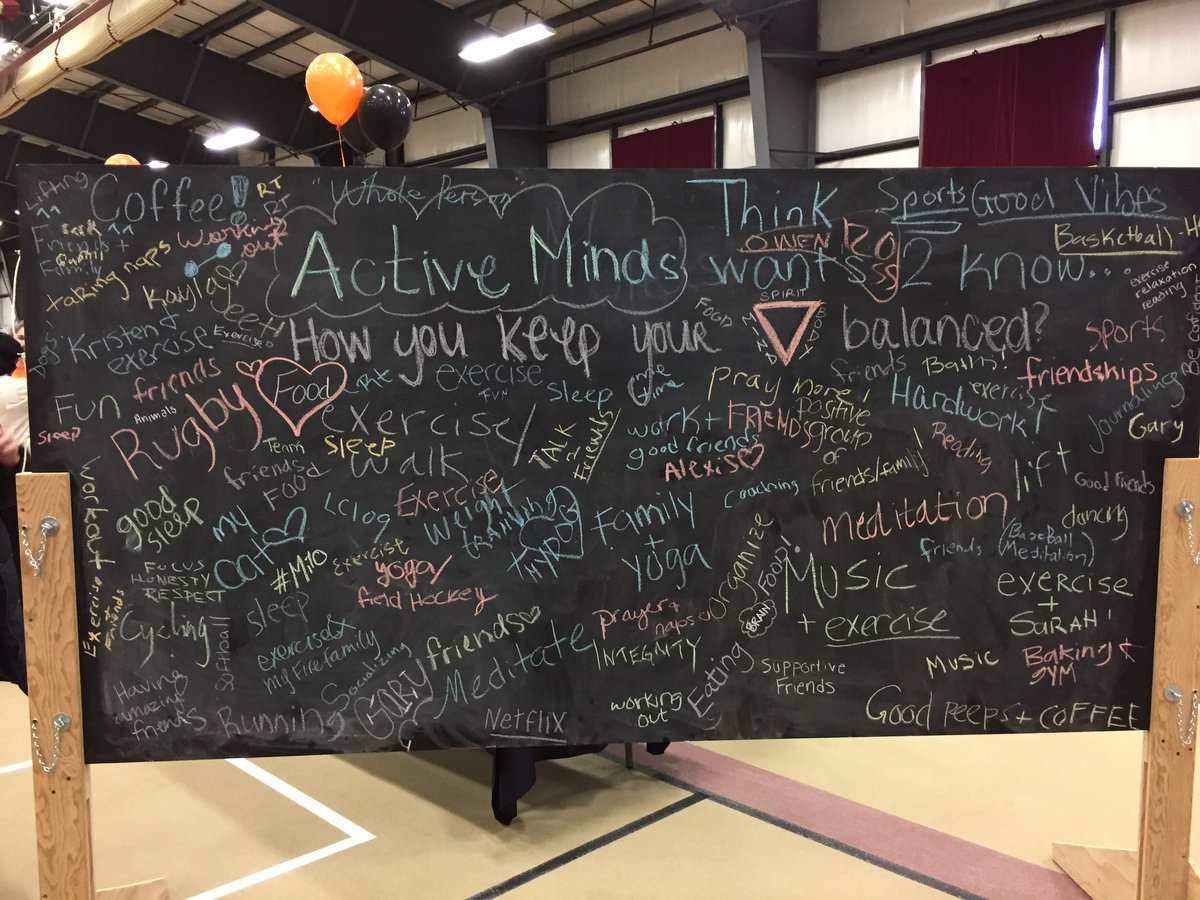 Lifting
Coffee!
RT
RT
"Whole Person"
Think
Sports
Good Vibes
Friends +
Family
taking naps
Working
out
Active Minds
OWEN ROSS
wants 2 know...
Basketball
exercise
relaxation
reading
Kayla
Kristen +
exercise
Exercise
How you keep your
FOOD
SPIRIT
MIND
BODY
balanced?
sports
Dogs
friends
Animals
FUN
sleep
Rugby
Food
Art
exercise
FUN
Sleep
me
time
pray more!
friends
Balln!
Hardwork!
exercise
friendships
Journaling
Gary
exercise/
walk
Team
sleep
friends
FOOD
TALK
2
Friends
work +
good friends
FRIENDS
Alexis
positive
group
of
friends/family!
Reading
lift
Good Friends
workout
good
sleep
my
cat
Exercise
Weight
training
+ HYDRO
Family
+
yoga
Coaching
meditation
dancing
friends
(Baseball
Meditation)
FOCUS
HONESTY
RESPECT
#Milo
Exercise
yoga/
field Hockey
organize
BRAIN
FOOD!
MUSIC
+ exercise
exercise
+
SARAH!
Exercise
Friends
Cycling
softball
sleep
exercise &
my fire family
Socializing
friends
Meditate
prayer +
naps
INTEGRITY
Eating
Supportive
Friends
Music
Baking &
GYM
Having
amazing
friends
Running
GARY
Netflix
working
out
Good peeps + COFFEE